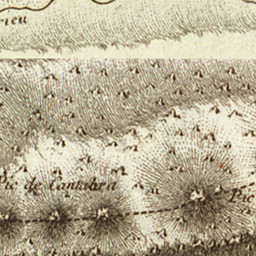 rieu
Pic de Cantabra
Pic